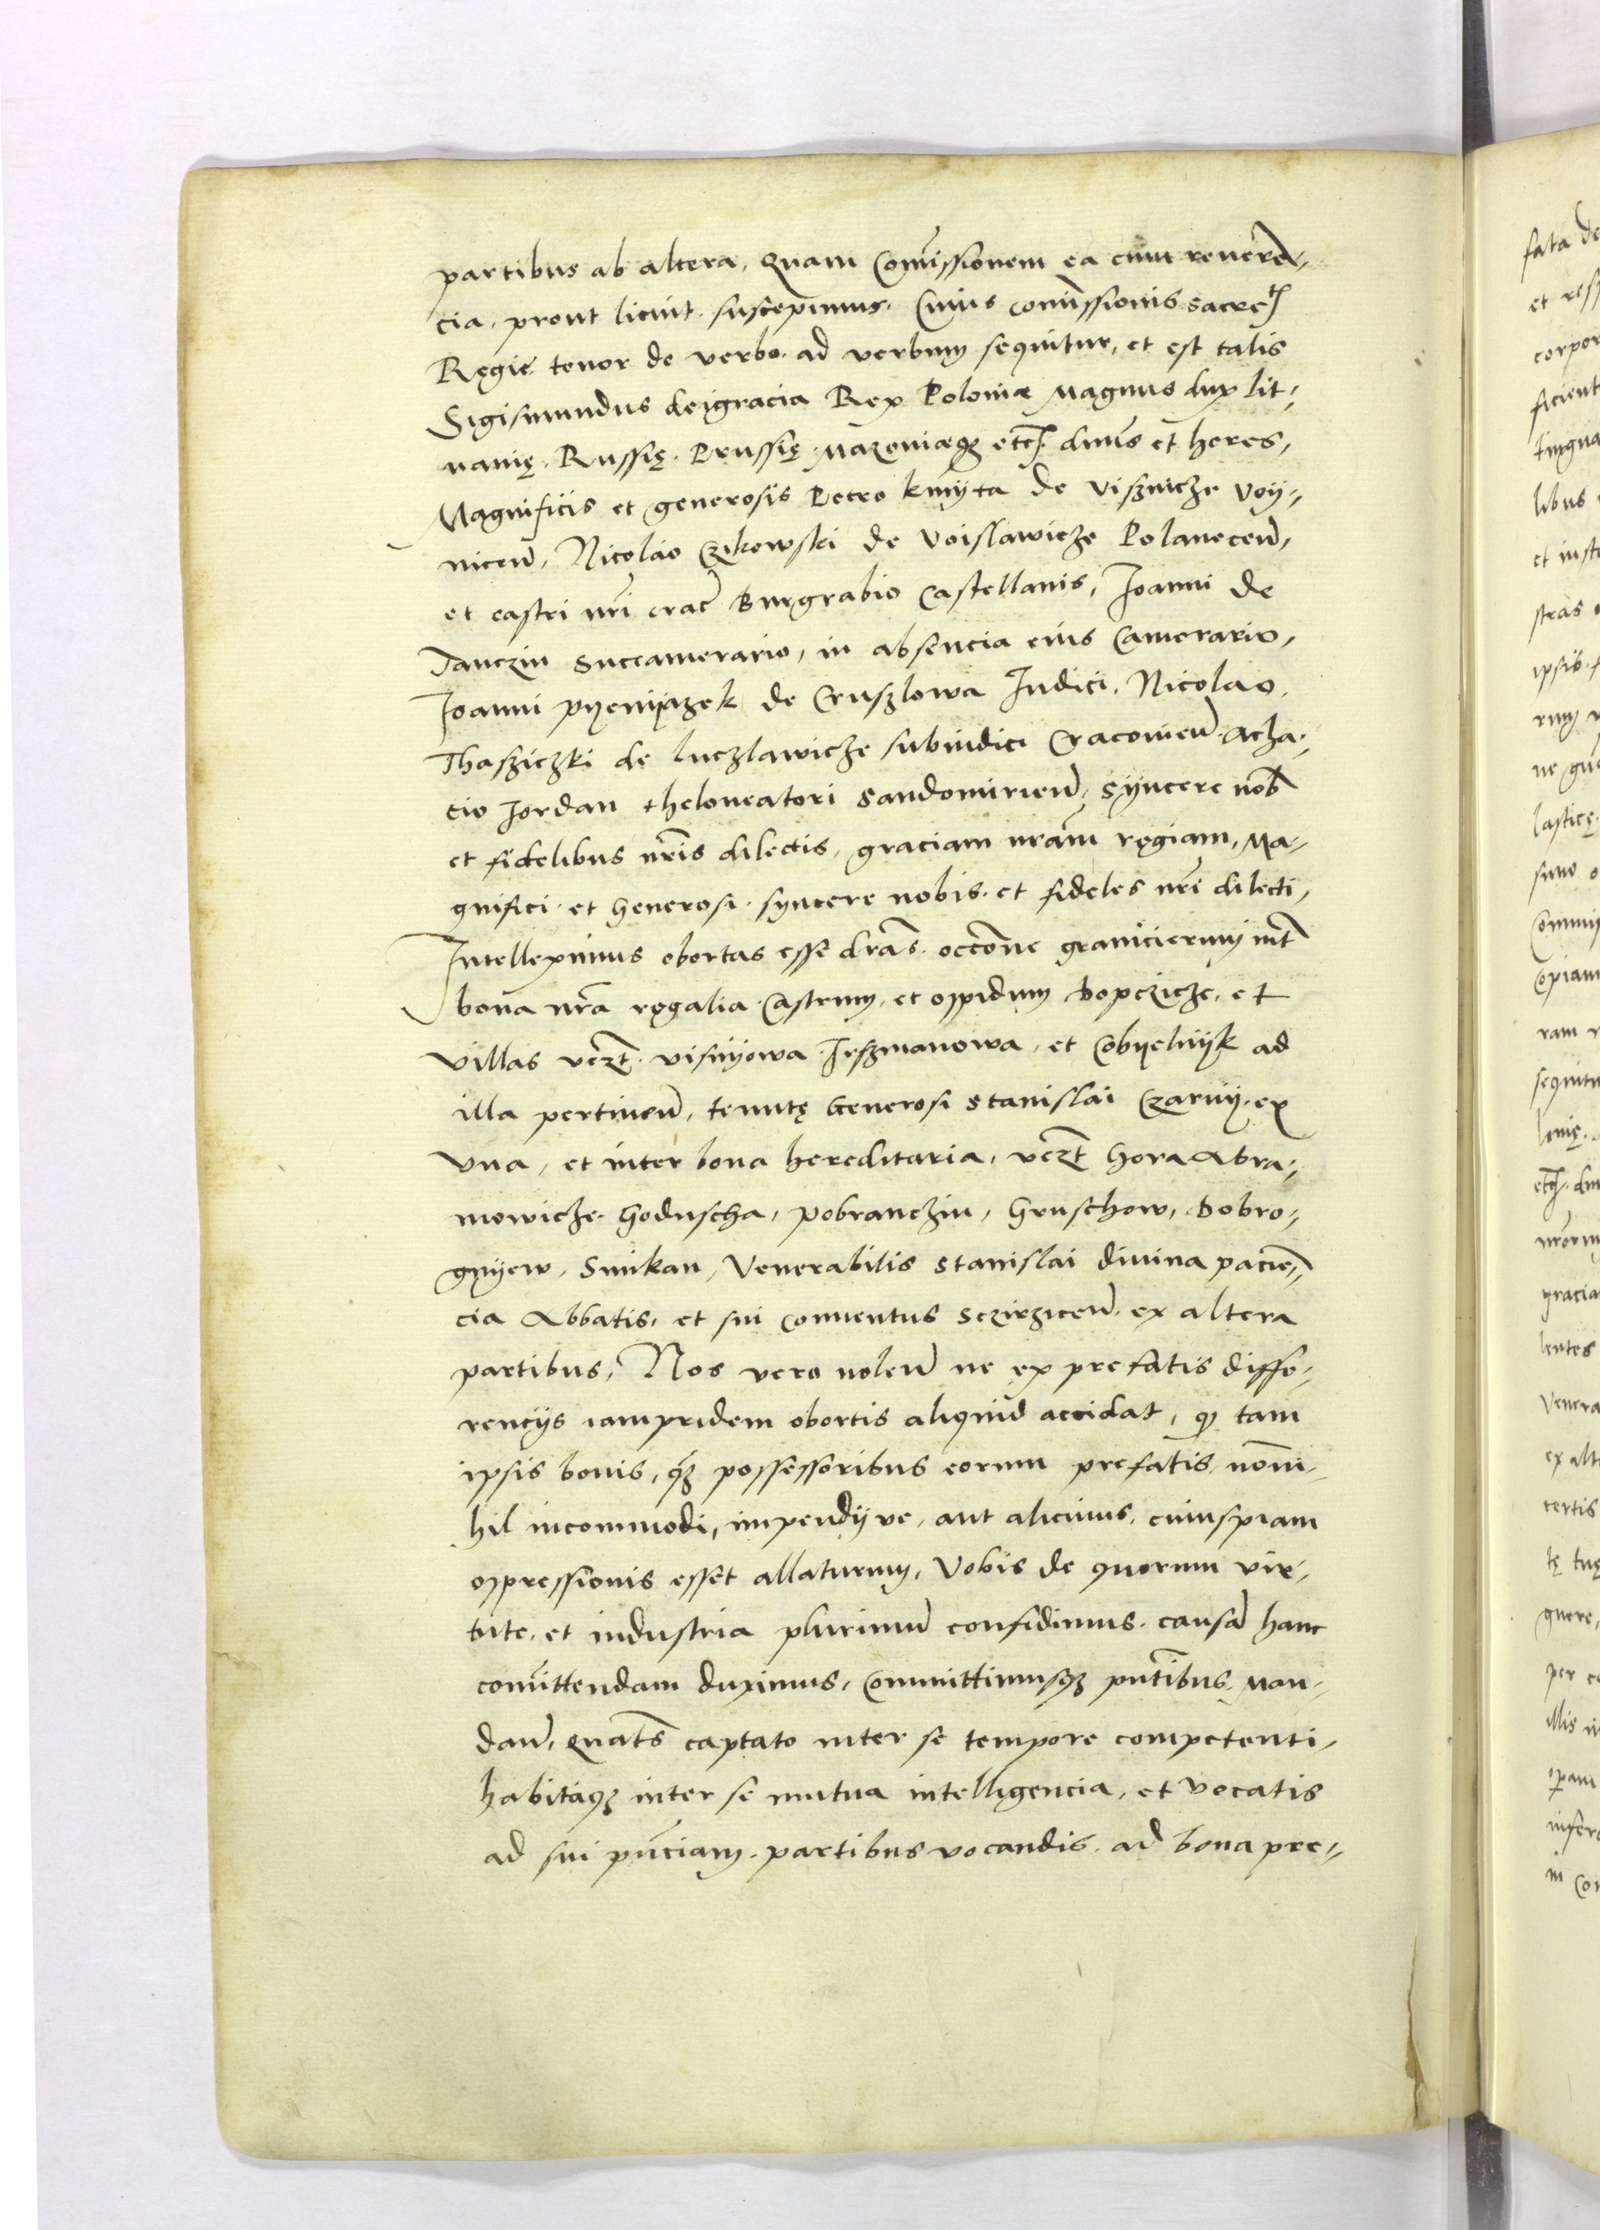 partibus ab altera, Quam Com̃issionem ea cum reueren̄-
cia, prout licuit, suscepimus. Cuius com̃issionis sacre
Regię tenor de verbo ad verbum sequitur, et est talis
Sigismundus dei gracia Rex Poloniæ Magnus dux lit-
uanię, Russię, Prussię, Mazoniæq3 etc. dnũs et heres,
Magnificis et generosis Petro kmijta de Visznicze Voij-
niceñ, Nicolao Czikowski de Voislawicze Polaneceñ,
et castri nrĩ crac̃ Burgrabio Castellanis, Joanni de
Tanczin Succamerario, in absencia eius Camerario,
Joanni pyenijazek de Cruszlowa Judici, Nicolao
Thasziczki de luczlawicze subiudici Cracouieñ. Acha-
cio Jordan theloneatori Sandomirieñ, Sijncere nob̃
et fidelibus nrĩs dilectis, graciam nrãm regiam, Ma-
gnifici et Generosi syncere nobis et fideles nrĩ dilecti,
Intelleximus obortas esse drãs occõne granicierum int̃
bona nrã regalia Castrum et oppidum Dopczicze, et
villas vcz̃t visnijowa Jrszmanowa, et Cobyelnijk ad
illa pertineñ, tenutę Generosi Stanislai Czarnij ex
Vna, et inter bona hereditaria, vcz̃t Gora Abra-
mowicze Goduscha, pobranczin, Gruschow, Dobro-
gnijew, Smikan, Venerabilis Stanislai diuina pacien̄-
cia Abbatis, et sui conuentus Sczirziceñ ex altera
partibus, Nos vero noleñ ne ex prefatis diffe-
rencijs iampridem obortis aliquid accidat, q̃ tam
ipsis bonis, q̃3 possessoribus eorum prefatis nõni-
hil incommodi, impendij ve, aut alicuius cuiuspiam
oppressionis esset allaturum, Vobis de quorum vir-
tute et industria plurimũ confidimus causam̃ hanc
com̃ittendam duximus, Committimusq3 pñtibus Man-
dañ, quatñs captato inter se tempore competenti,
habitaq3 inter se mutua intelligencia, et vocatis
ad sui pñciam partibus vocandis ad bona pre-